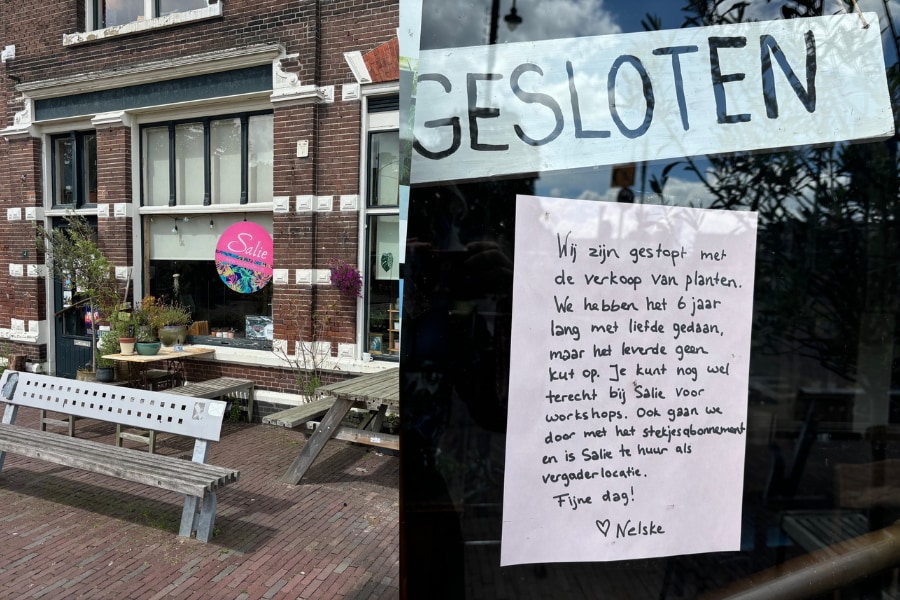 Salie
GESLOTEN
Wij zijn gestopt met
de verkoop van planten.
We hebben het 6 jaar
lang met liefde gedaan,
maar het leverde geen
kut op. Je kunt nog wel
terecht bij Salie voor
workshops. Ook gaan we
door met het stekjesabonnement
en is Salie te huur als
vergaderlocatie.
Fijne dag!
♡ Nelske